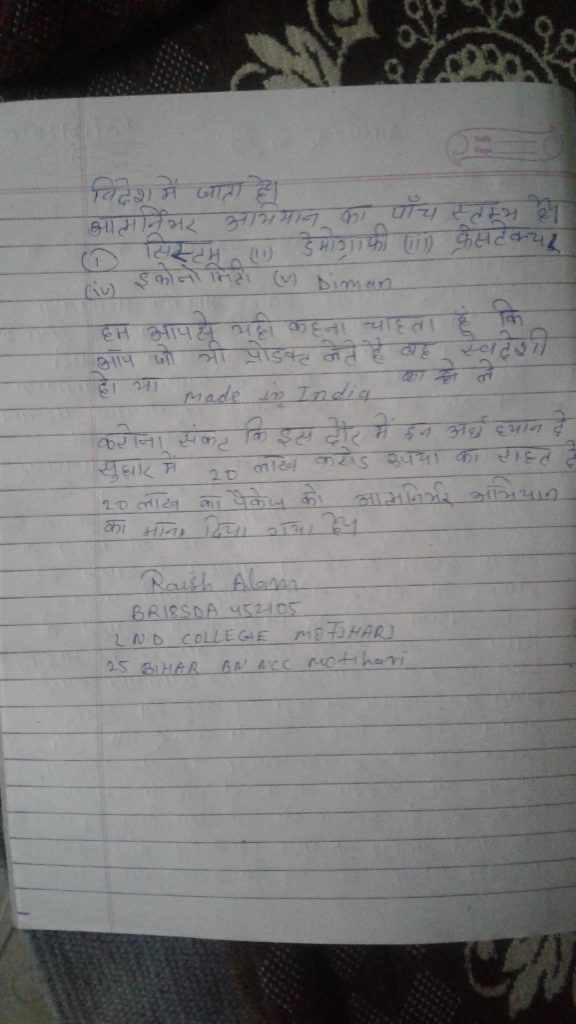 विदेश में जाता है।
आत्मनिर्भर अभियान का पाँच स्तम्भ है।
(i) सिस्टम (ii) डेमोग्राफी (iii)
(iv) इकोनोमिटी (v) Diman
हम आपसे यही कहना चाहता हूं कि
आप जो भी प्रोडक्ट लेते है वह स्वदेशी
हो या made in India का ही ले
करोना संकट कि इस दौर में इन अर्थ ध्यान दे
सुधार में 20 लाख करोड रुपया का राहत दे
20 लाख का पैकेज को आत्मनिर्भर अभियान
का दिया गया है।
Raish Alam
BR18SDA 452105
L.N.D COLLEGE MOTIHARI
25 BIHAR BN NCC Motihari